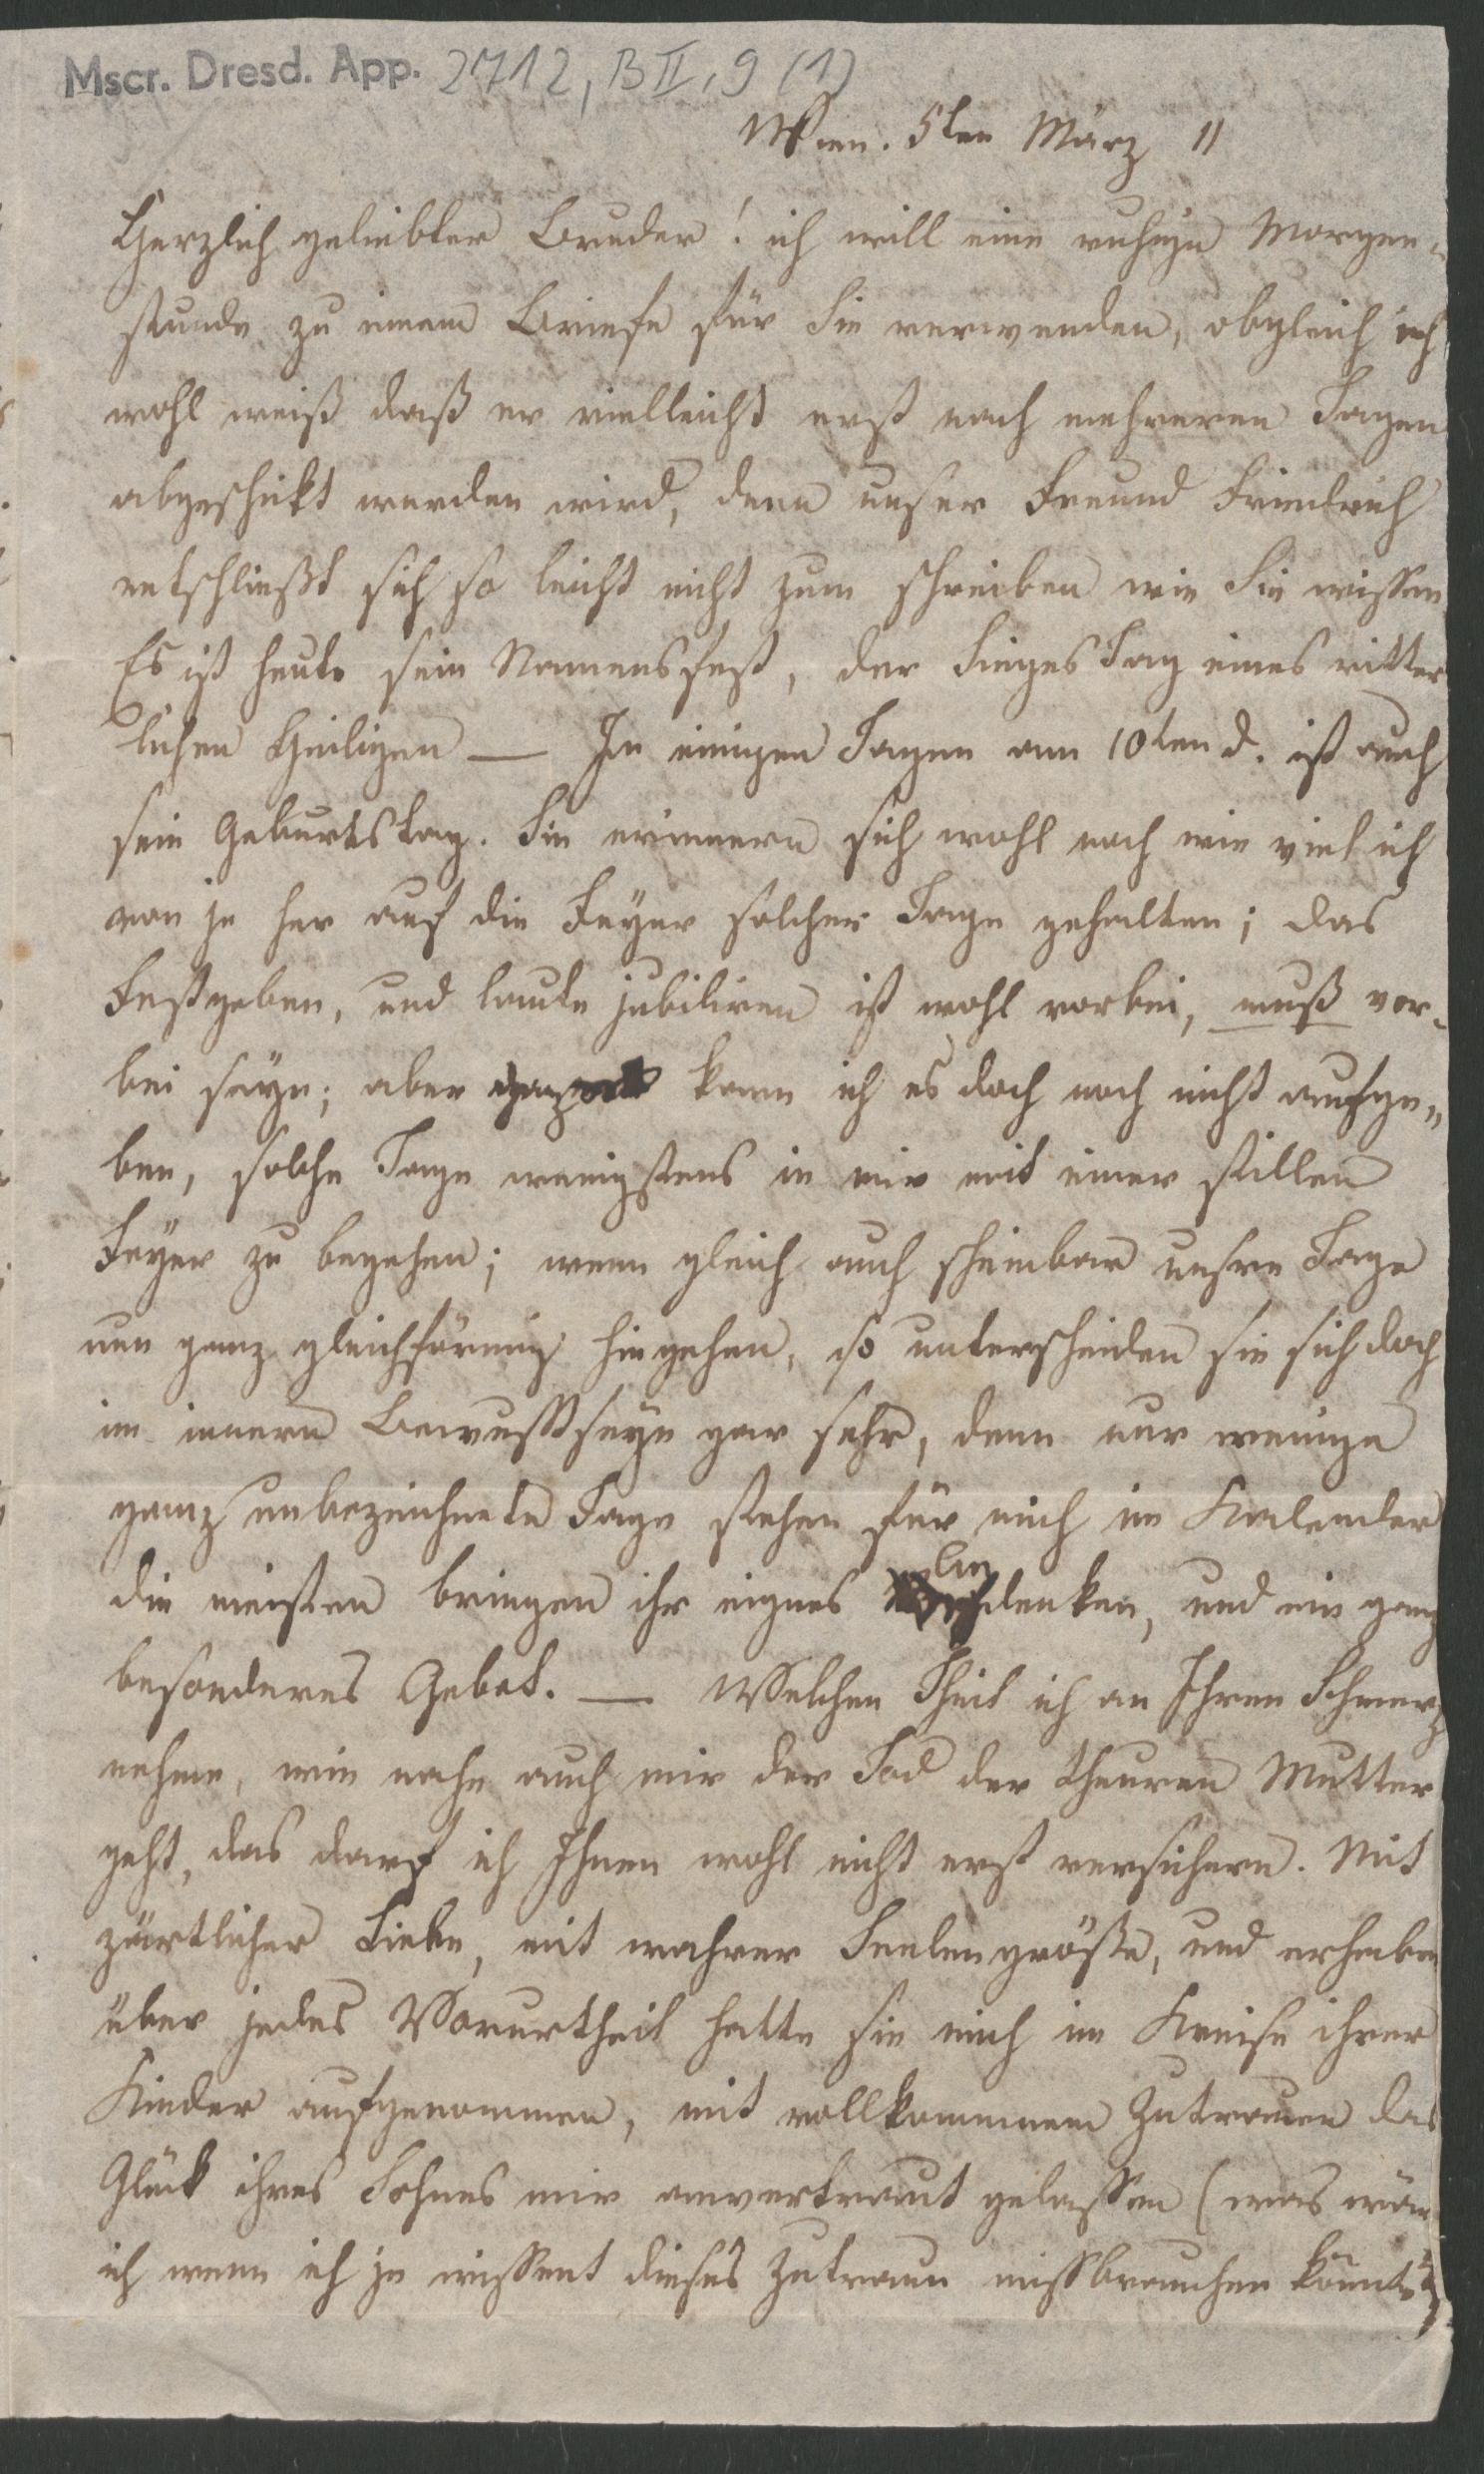 Mscr. Dresd. App. 2712, B II, 9 (1)
Wien. 5ten März 11
Herzlich geliebter Bruder! ich will eine ruhige Morgen-
stunde zu einem Briefe für Sie verwenden, obgleich ich
wohl weiß daß er vielleicht erst nach mehreren Tagen
abgeschikt werden wird, denn unser Freund Friedrich
entschließt sich so leicht nicht zum schreiben wie Sie wissen
Es ist heute sein Namensfest, der Sieges Tag eines ritter
lichen Heiligen — In einigen Tagen am 10ten d. ist auch
sein Geburtstag. Sie erinnern sich wohl noch wie viel ich
von je her auf die Feyer solcher Tage gehalten; das
Festgeben, und laute jubiliren ist wohl vorbei, muß vor-
bei seyn; aber kann ich es doch noch nicht aufge-
ben, solche Tage wenigstens in mir mit einer stillen
Feyer zu begehen; wenn gleich auch scheinbar unsre Tage
nun ganz gleichförmig hingehen, so unterscheiden sie sich doch
im innern Bewußtseyn gar sehr, denn nur wenige
ganz unbezeichnete Tage stehen für mich im Kalender
die meisten bringen ihr eignes Andenken, und ein ganz
besonderes Gebet. — Welchen Theil ich an Ihren Schmerz
nehme, wie nahe auch mir der Tod der theuren Mutter
geht, das darf ich Ihnen wohl nicht erst versichern. Mit
zärtlicher Liebe, mit wahrer Seelengröße, und erhaben
über jedes Vorurtheil hatte sie mich im Kreise ihrer
Kinder aufgenommen, mit vollkommnem Zutrauen das
Glück ihres Sohnes mir anvertraut gelassen (was wär
ich wenn ich je wissent dieses Zutraun missbrauchen könnte!)